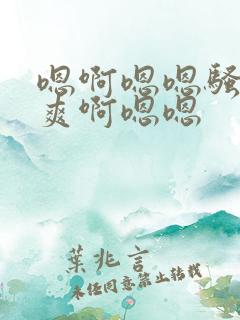 嗯啊嗯嗯骚
爽啊嗯嗯
葉兆言
未经同意禁止转载